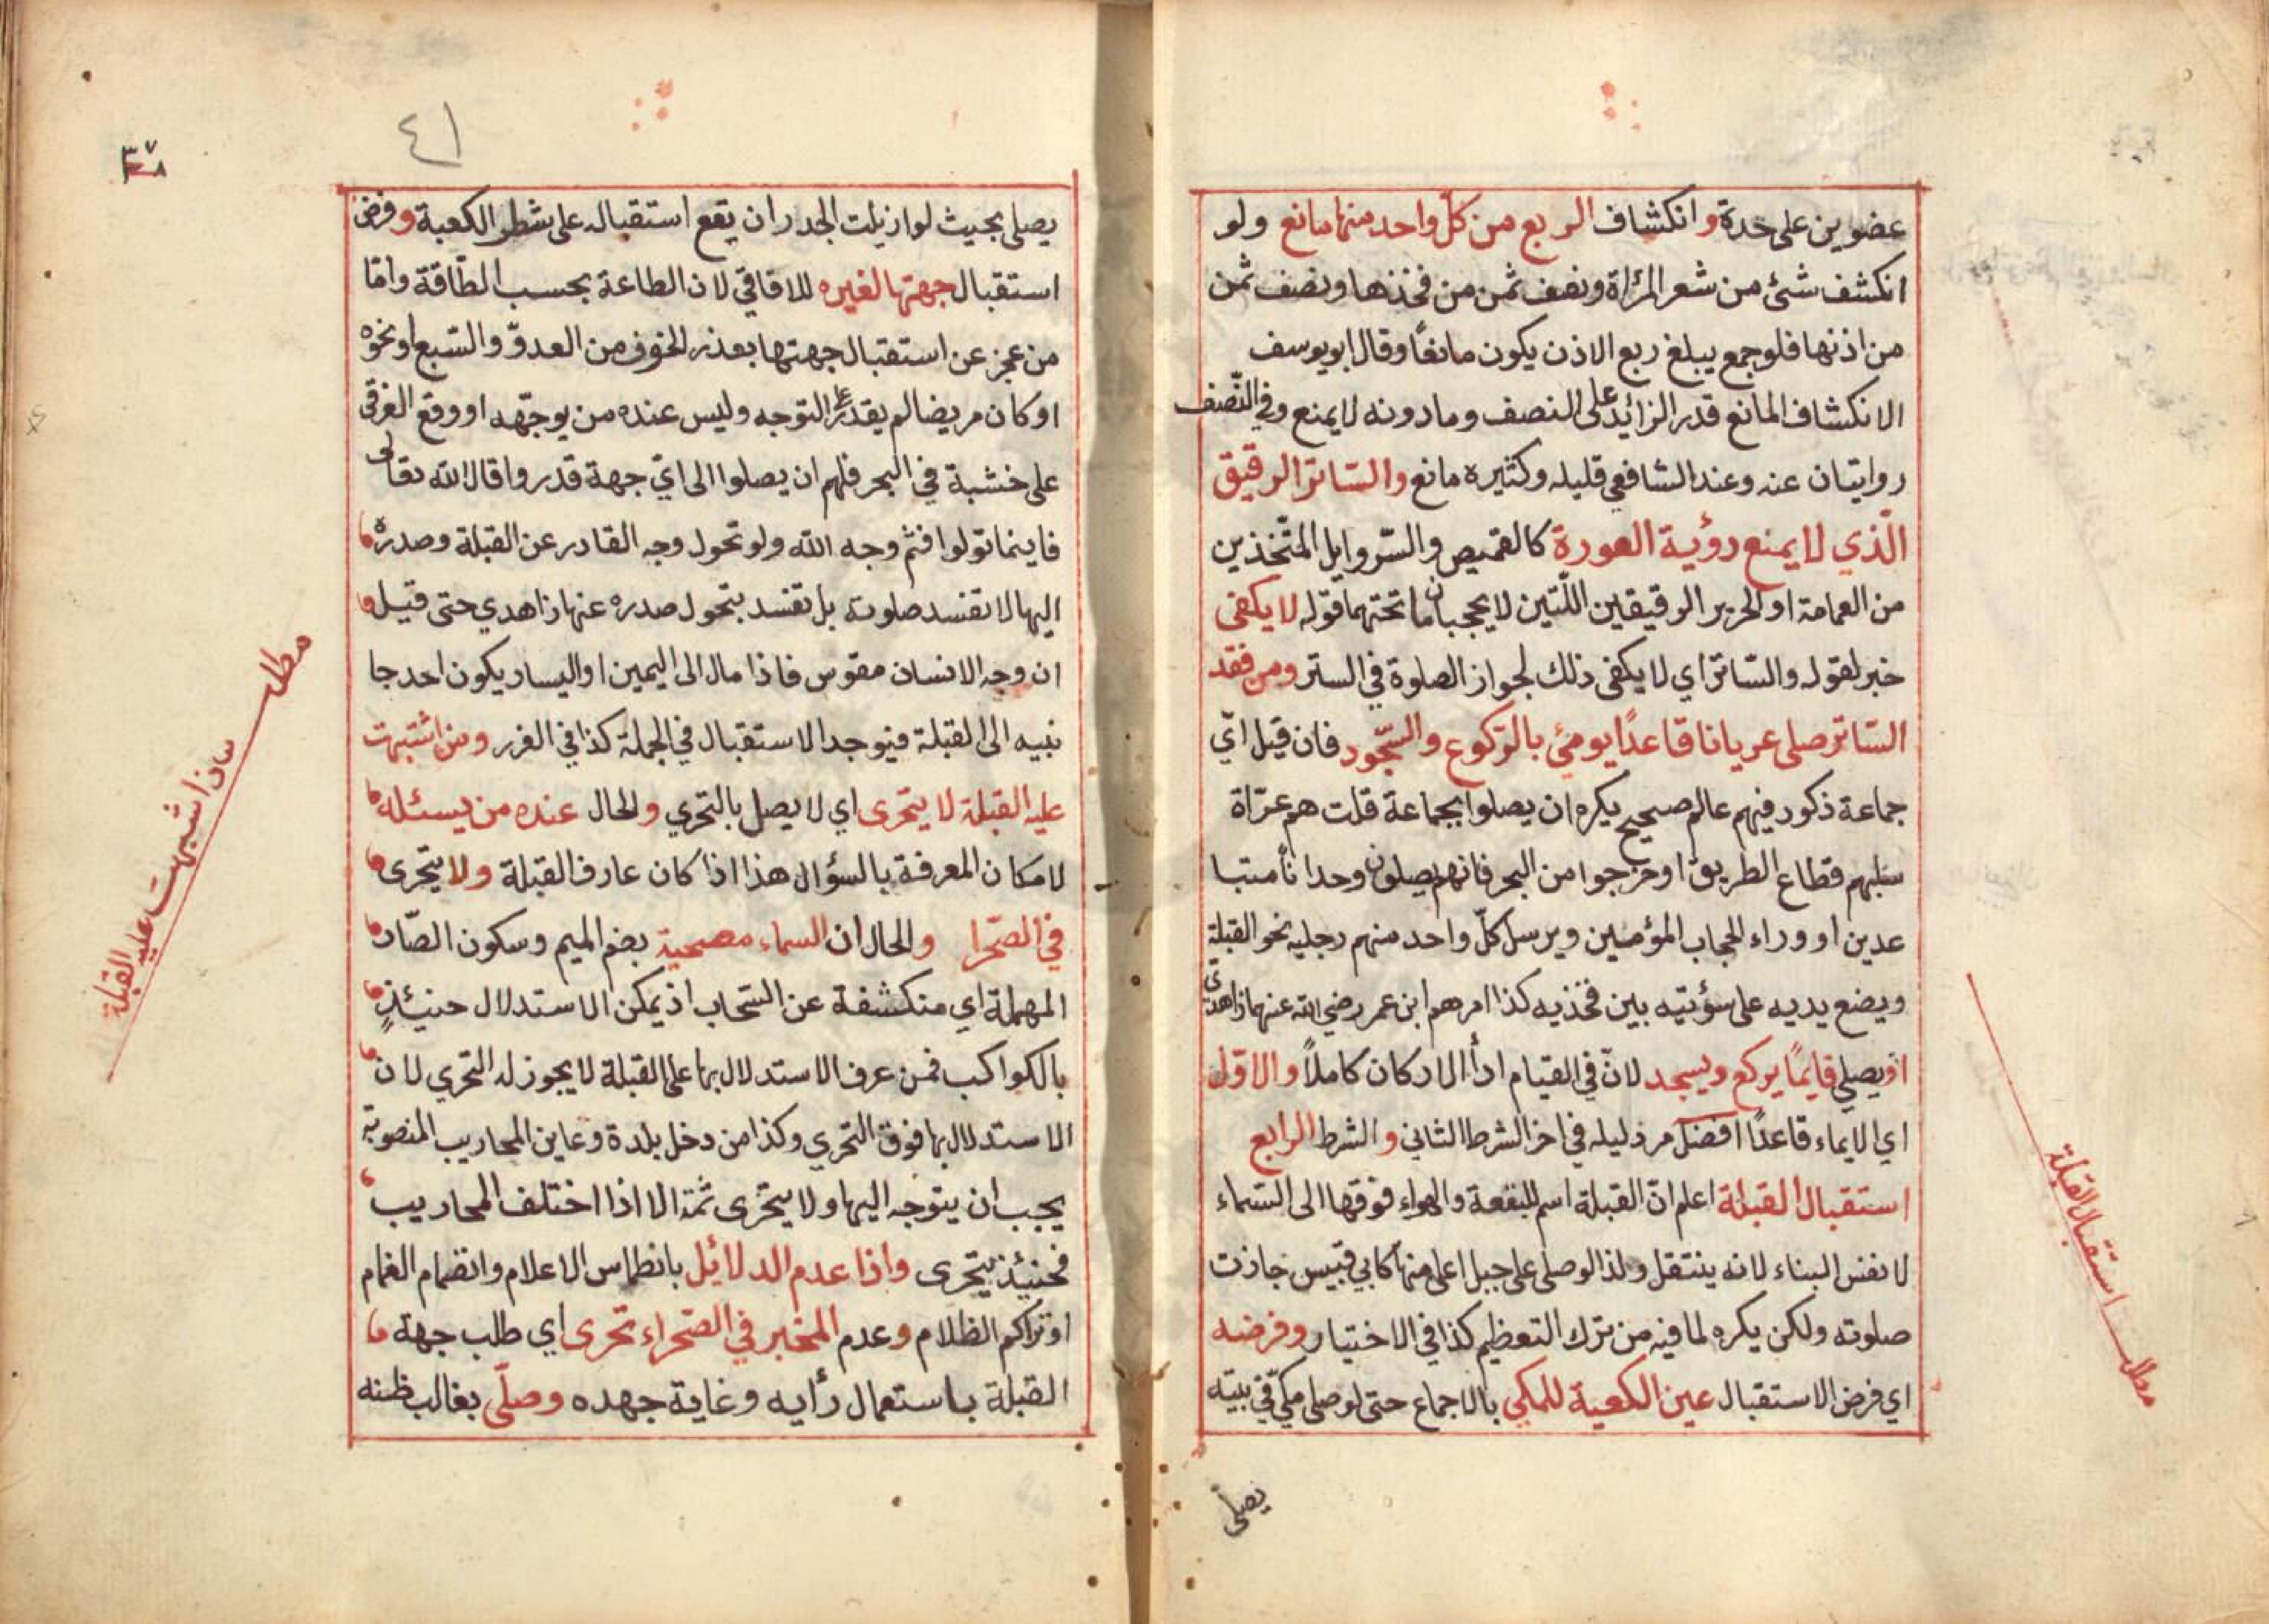 عضوين على حدة وانكشاف الربع من كلّ واحد منهما مانع ولو
انكشف شئ من شعر المرأة ونصف ثمن من فخذها ونصف ثمن
من اذنها فلو جمع يبلغ ربع الاذن يكون مانعًا وقال ابو يوسف
الانكشاف المانع قدر الزائد على النصف وما دونه لا يمنع وفي النّصف
روايتان عنه وعند الشافعي قليله وكثيره مانع والسّاتر الرقيق
الّذي لا يمنع رؤية العورة كالقميص والسّروايل المتّخذين
من العمامة او الحرير الرقيقين اللّتين لا يحجبان ما تحتهما قوله لا يكفى
خبر لقوله والسّاتر اي لا يكفى ذلك لجواز الصلوة في الستر ومن فقد
السّاتر صلى عريانا قاعدًا يومئ بالرّكوع والسّجود فان قيل ايّ
جماعة ذكور فيهم عالم صحيح يكره ان يصلوا بجماعة قلت هم عرّاة
سلبهم قطاع الطريق او خرجوا من البحر فانهم يصلون وحدانًا متبا
عدين او وراء الحجاب المؤمنين ويرسل كلّ واحد منهم رجليه نحو القبلة
ويضع يديه على سؤتيه بين فخذيه كذا امرهم ابن عمر رضي الله عنهما زاهدى
او يصلي قايمًا يركع ويسجد لانّ في القيام ادأ الاركان كاملاً والاوّل
اي الايماء قاعدًا افضل مر دليله في اخر الشرط الثاني والشرط الرابع
استقبال القبلة اعلم انّ القبلة اسم للبقعة والهواء فوقها الى السّماء
لا نفس البناء لانه ينتقل ولذا لو صلى على جبل اعلى منها كابي قبيس جازت
صلوته ولكن يكره لما فيه من ترك التعظيم كذا في الاختيار وفرضه
اي فرض الاستقبال عين الكعبة للمكي بالاجماع حتى لو صلى مكّي في بيته
يصلى
مطلب استقبال القبلة
٤١
يصلى بحيث لو ازيلت الجدران يقع استقباله على شطر الكعبة وفرض
استقبال جهتها لغيره للافاقي لان الطاعة بحسب الطّاقة وامّا
من عجز عن استقبال جهتها بعذر الخوف من العدوّ والسّبع او نحوه
او كان مريضا لم يقدر على التوجه وليس عنده من يوجّهه او وقع الغرقى
على خشبة في البحر فلهم ان يصلوا الى ايّ جهة قدروا قال الله تعالى
فاينما تولوا فثم وجه الله ولو تحول وجه القادر عن القبلة وصدره
اليها لا تفسد صلوته بل تفسد بتحول صدره عنها زاهدي حتى قيل
ان وجه الانسان مقوس فاذا مال الى اليمين او اليسار يكون احد جا
نبيه الى القبلة فيوجد الاستقبال في الجملة كذا في الغرر ومن اشتبهت
عليه القبلة لا يتحرى اي لا يصل بالتحري والحال عنده من يسئله
لامكان المعرفة بالسؤال هذا اذا كان عارف القبلة ولا يتحرى
في الصّحرا والحال ان السماء مصحية بضم الميم وسكون الصّاد
المهملة اي منكشفة عن السّحاب اذ يمكن الاستدلال حنيئذٍ
بالكواكب فمن عرف الاستدلال بها على القبلة لا يجوز له التحري لان
الاستدلال بها فوق التحري وكذا من دخل بلدة وعاين المحاريب المنصوبة
يجب ان يتوجه اليها ولا يتحرى ثمة الا اذا اختلف المحاريب
فحنيئذ يتحرى واذا عدم الدلائيل بانطماس الاعلام وانضمام الغمام
او تراكم الظلام وعدم المخبر في الصّحراء تحرى اي طلب جهة
القبلة باستعمال رأيه وغاية جهده وصلّى بغالب ظنه
مطلب
اذا شبهت عليه القبلة